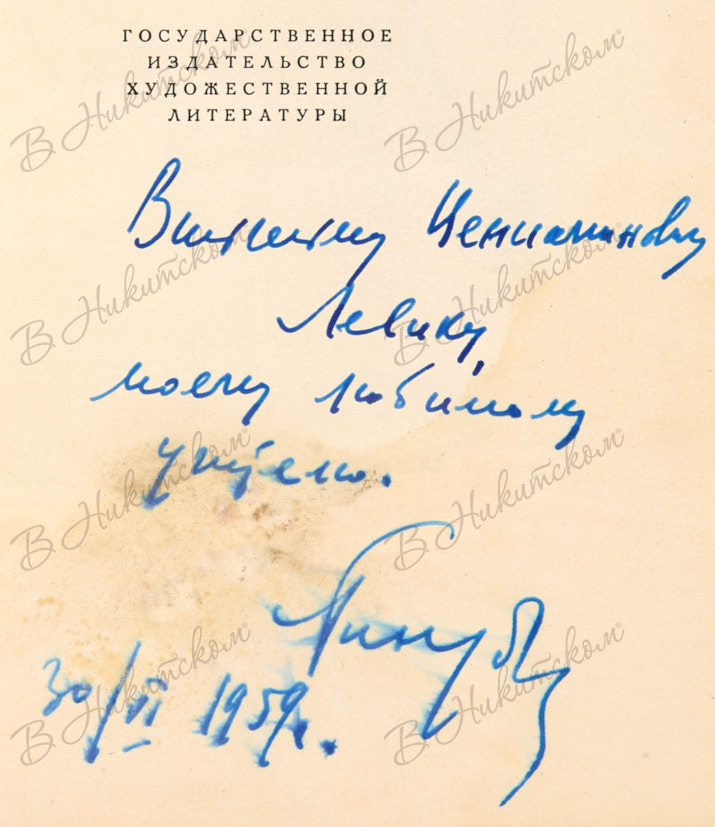 ГОСУДАРСТВЕННОЕ
ИЗДАТЕЛЬСТВО
ХУДОЖЕСТВЕННОЙ
ЛИТЕРАТУРЫ
В Никитском® В Никитском®
Вильгельму Вениаминовичу
В Никитском® В Никитском®
Левику,
моему любимому
учителю.
В Никитском® В Никитском®
30/VI 1959г.
В Никитском® В Никитском®